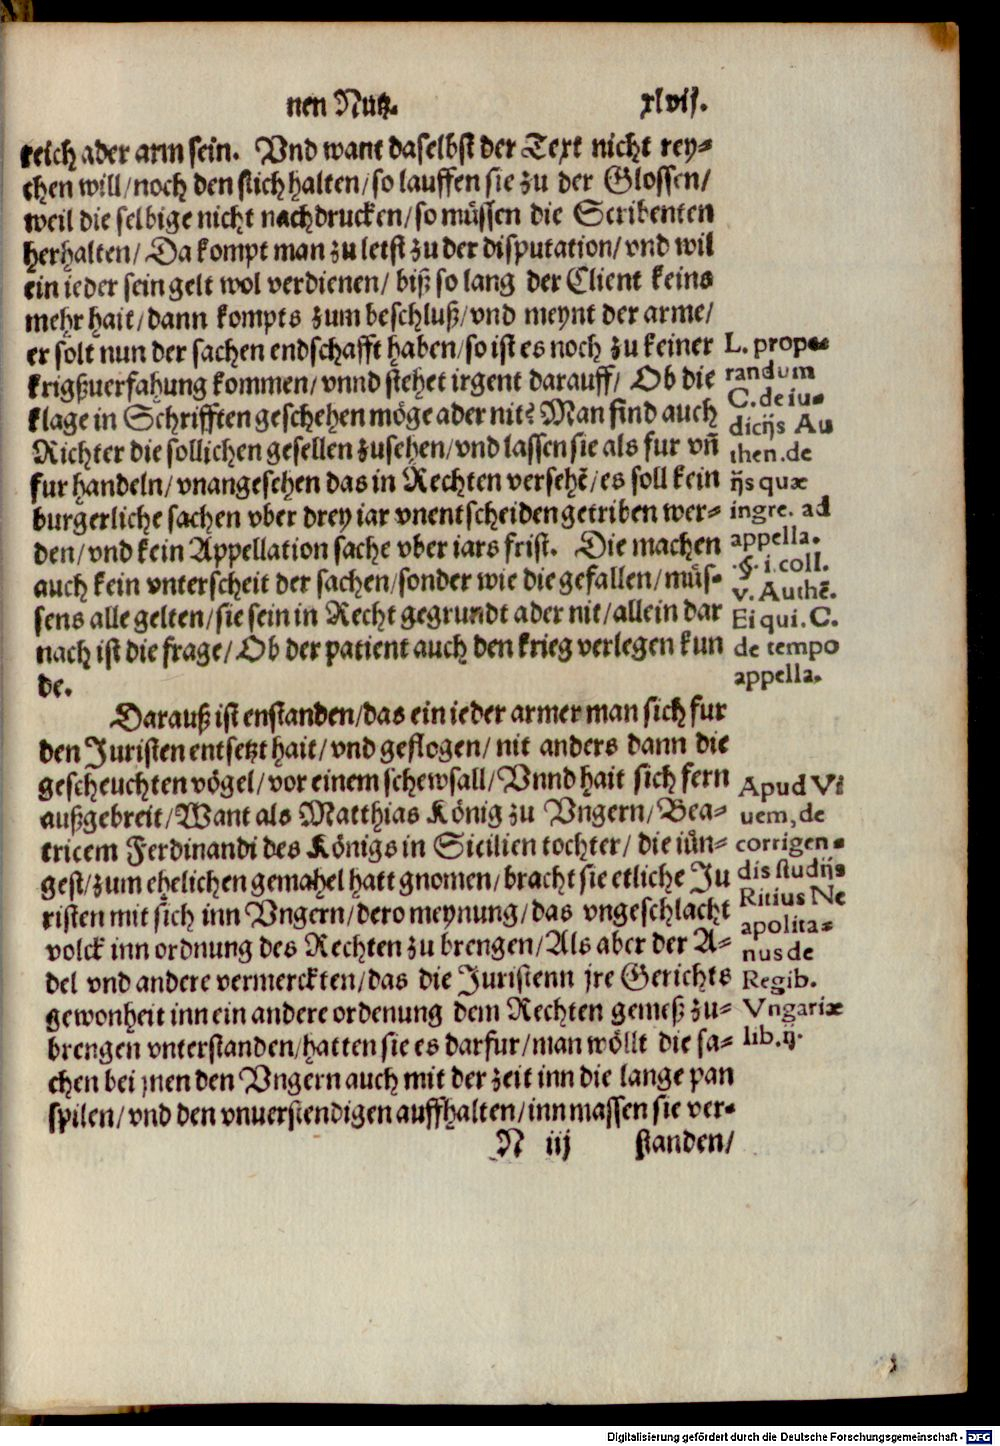 nen Nutz. xlvij.
reich ader arm sein. Vnd want daselbst der Text nicht rey-
chen will/noch den stich halten/so lauffen sie zu der Glossen/
weil die selbige nicht nachdrucken/so müssen die Scribenten
herhalten/Da kompt man zu letst zu der disputation/vnd wil
ein ieder sein gelt wol verdienen/biß so lang der Client keins
mehr hait/dann kompts zum beschluß/vnd meynt der arme/
er solt nun der sachen endschafft haben/so ist es noch zu keiner
krigßuerfahung kommen/vnnd stehet irgent darauff/Ob die
klage in Schrifften geschehen möge ader nit? Man find auch
Richter die sollichen gesellen zusehen/vnd lassen sie als fur vñ
fur handeln/vnangesehen das in Rechten versehẽ/es soll kein
burgerliche sachen vber drey iar vnentscheiden getriben wer-
den/vnd kein Appellation sache vber iars frist. Die machen
auch kein vnterscheit der sachen/sonder wie die gefallen/müs-
sens alle gelten/sie sein in Recht gegrundt ader nit/allein dar
nach ist die frage/Ob der patient auch den krieg verlegen kun
de.
L. prope-
randum
C. de iu-
dicijs Au
then. de
ijs quæ
ingre. ad
appella.
§. i. coll.
v. Authẽ.
Ei qui. C.
de tempo
appella.
Darauß ist enstanden/das ein ieder armer man sich fur
den Juristen entsetzt hait/vnd geflogen/nit anders dann die
gescheuchten vögel/vor einem schewsall/Vnnd hait sich fern
außgebreit/Want als Matthias König zu Vngern/Bea-
tricem Ferdinandi des Königs in Sicilien tochter/die iün-
gest/zum ehelichen gemahel hatt gnomen/bracht sie etliche Ju
risten mit sich inn Vngern/dero meynung/das vngeschlacht
volck inn ordnung des Rechten zu brengen/Als aber der A-
del vnd andere vermerckten/das die Juristenn jre Gerichts
gewonheit inn ein andere ordenung dem Rechten gemeß zu-
brengen vnterstanden/hatten sie es darfur/man wöllt die sa-
chen bei jnen den Vngern auch mit der zeit inn die lange pan
spilen/vnd den vnuerstendigen auffhalten/inn massen sie ver-
Apud Vi
uem, de
corrigen-
dis studijs
Ritius Ne
apolita-
nus de
Regib.
Vngariæ
lib. ij.
N iij standen/
Digitalisierung gefördert durch die Deutsche Forschungsgemeinschaft - DFG